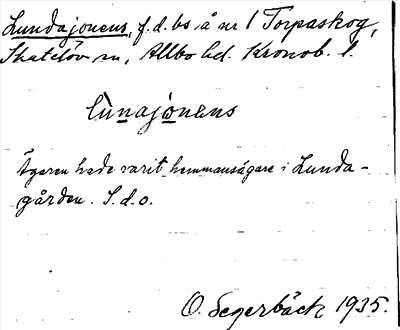 Lundajonens, f.d. bs å nr 1 Torpaskog,
Skatelöv sn, Allbo hd. Kronob. l.
lùnajònens
Ägaren hade varit hemmansägare i Lunda-
gården. S.d.o.
O. Segerbäck 1935.